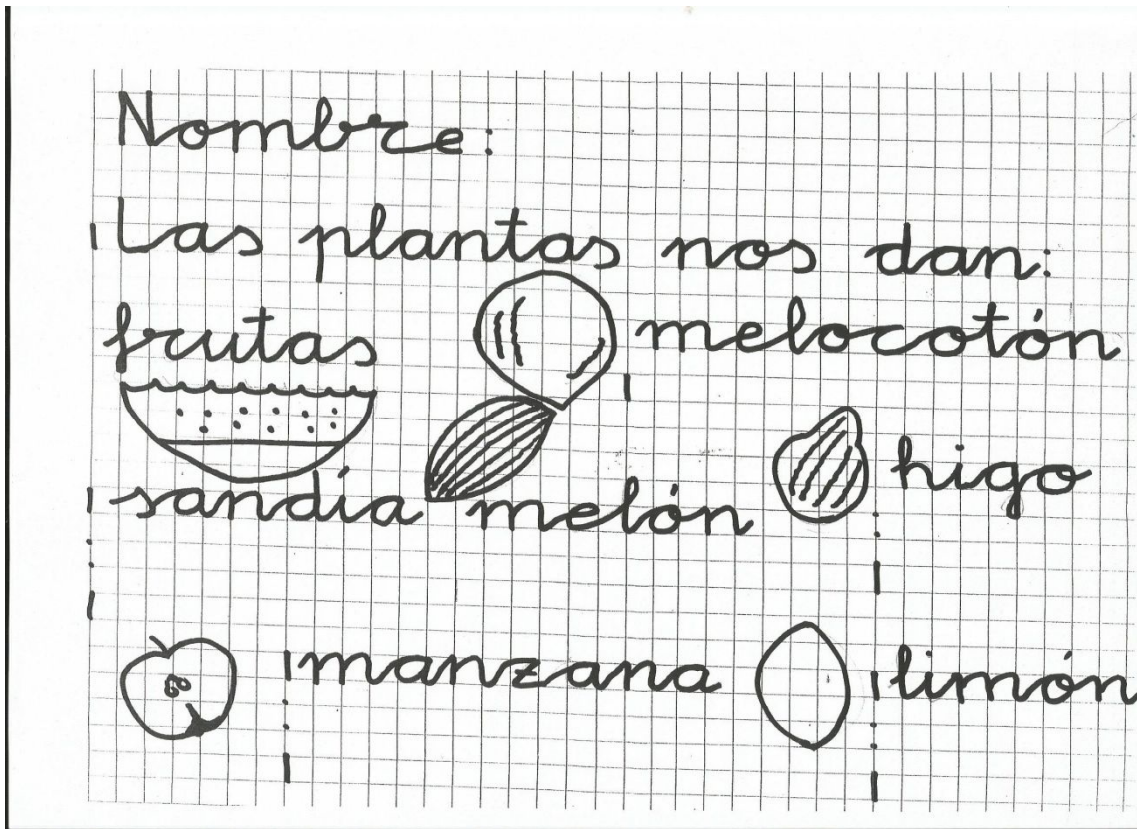 Nombre:
Las plantas nos dan:
frutas melocotón
sandía melón higo
manzana limón